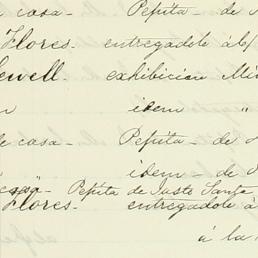 casa - Pepita - de
Flores. entregadole á
ewell. exhibicion
idem "
de casa - Pepita - de
idem - de
casa Pepita de Justo Santa
Flores - entregadole á
á la